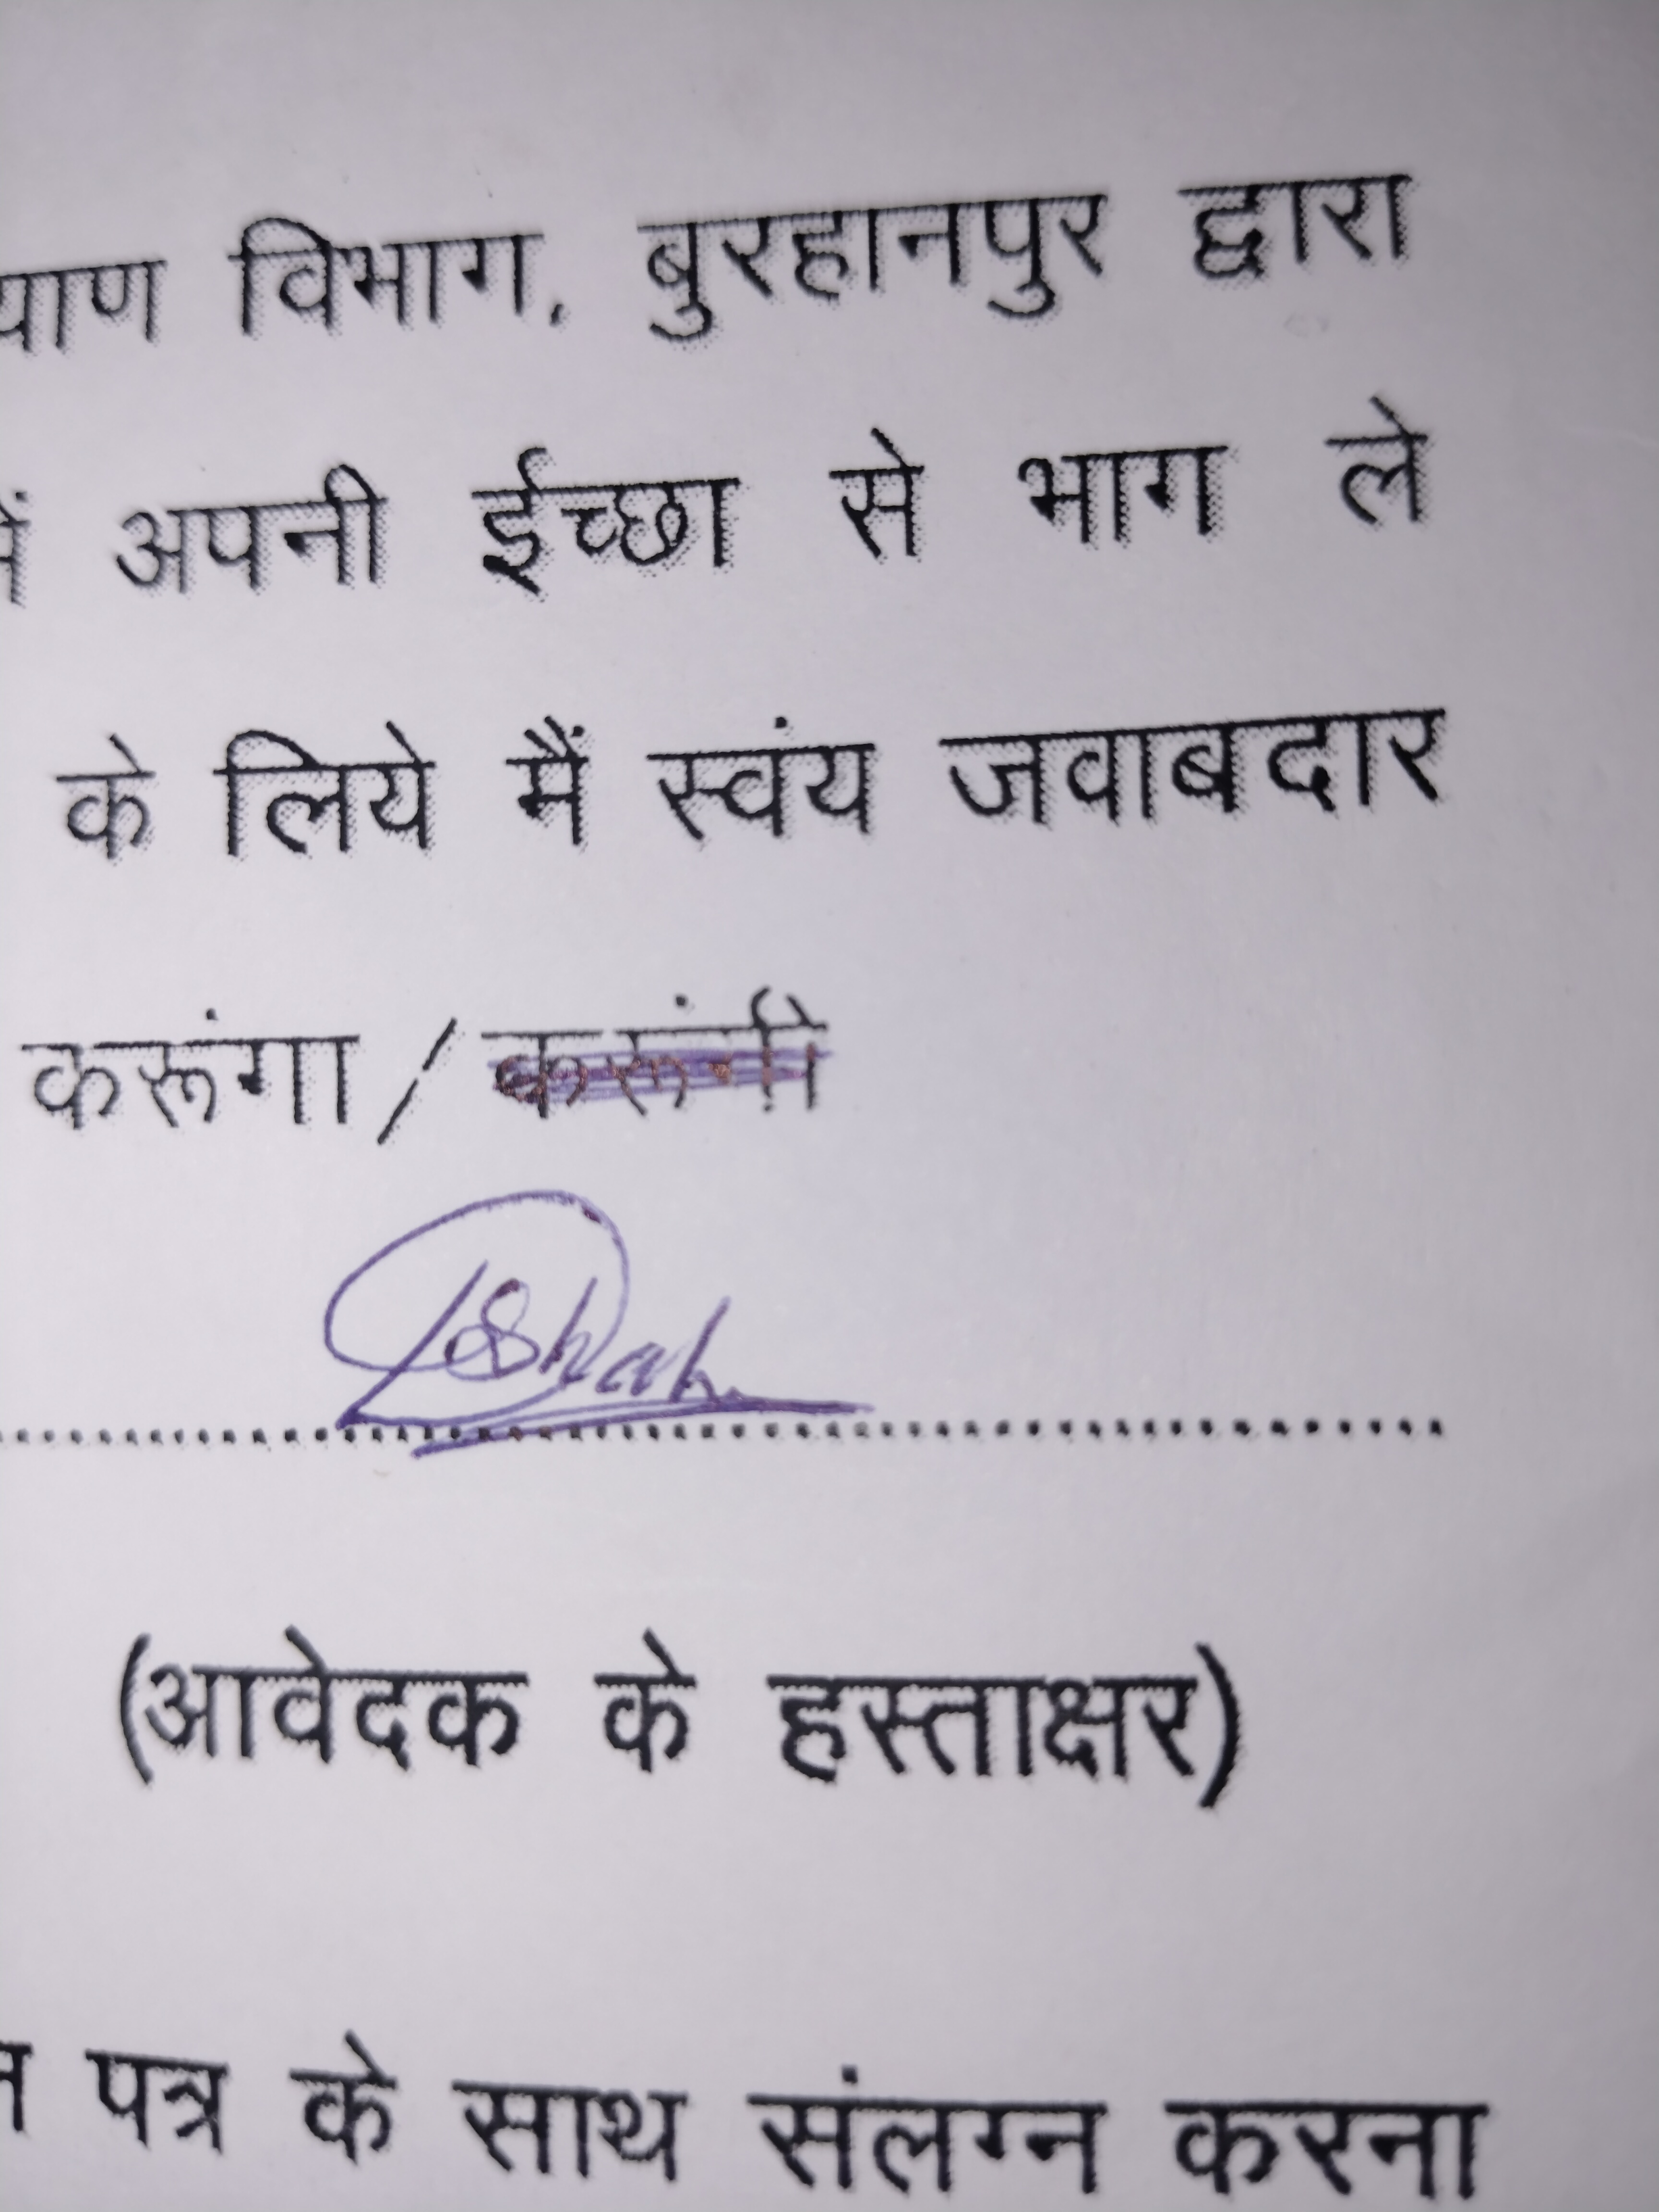 विभाग, बुरहानपुर द्वारा
में अपनी ईच्छा से भाग ले
के लिये मैं स्वंय जवाबदार
करूंगा / करूंगी
(आवेदक के हस्ताक्षर)
पत्र के साथ संलग्न करना